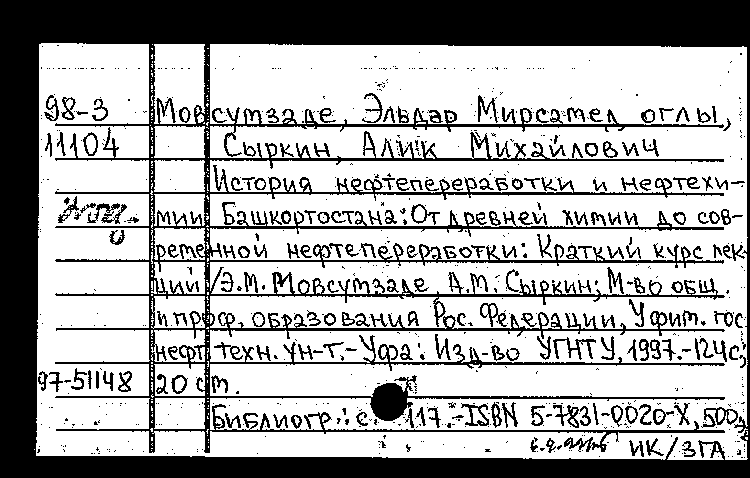 98-3 Мовсумзаде, Эльдар Мирсамед оглы,
11104 Сыркин, Алик Михайлович
История нефтепереработки и нефтехи-
мии Башкортостана: От древней химии до сов-
ременной нефтепереработки: Краткий курс лек-
ций /Э.М. Мовсумзаде, А.М. Сыркин; М-во общ.
и проф. образования Рос. Федерации, Уфим. гос
нефт. техн. ун-т.-Уфа: Изд-во УГНТУ, 1997.-124с;
97-51148 20 см.
Библиогр.: с. 117.-ISBN 5-7831-0020-X, 500
ИК/ЗГА